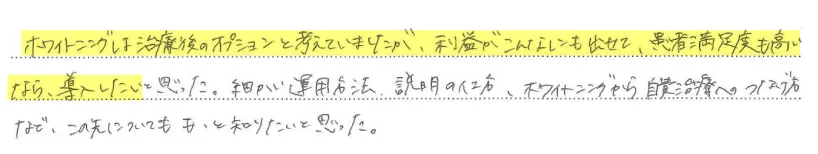 ホワイトニングは治療後のオプションと考えていましたが、利益がこんなにも出せて、患者満足度も高い
なら、導入したいと思った。細かい運用方法、説明の仕方、ホワイトニングから自費治療へのつなげ方
など、この先についてももっと知りたいと思った。